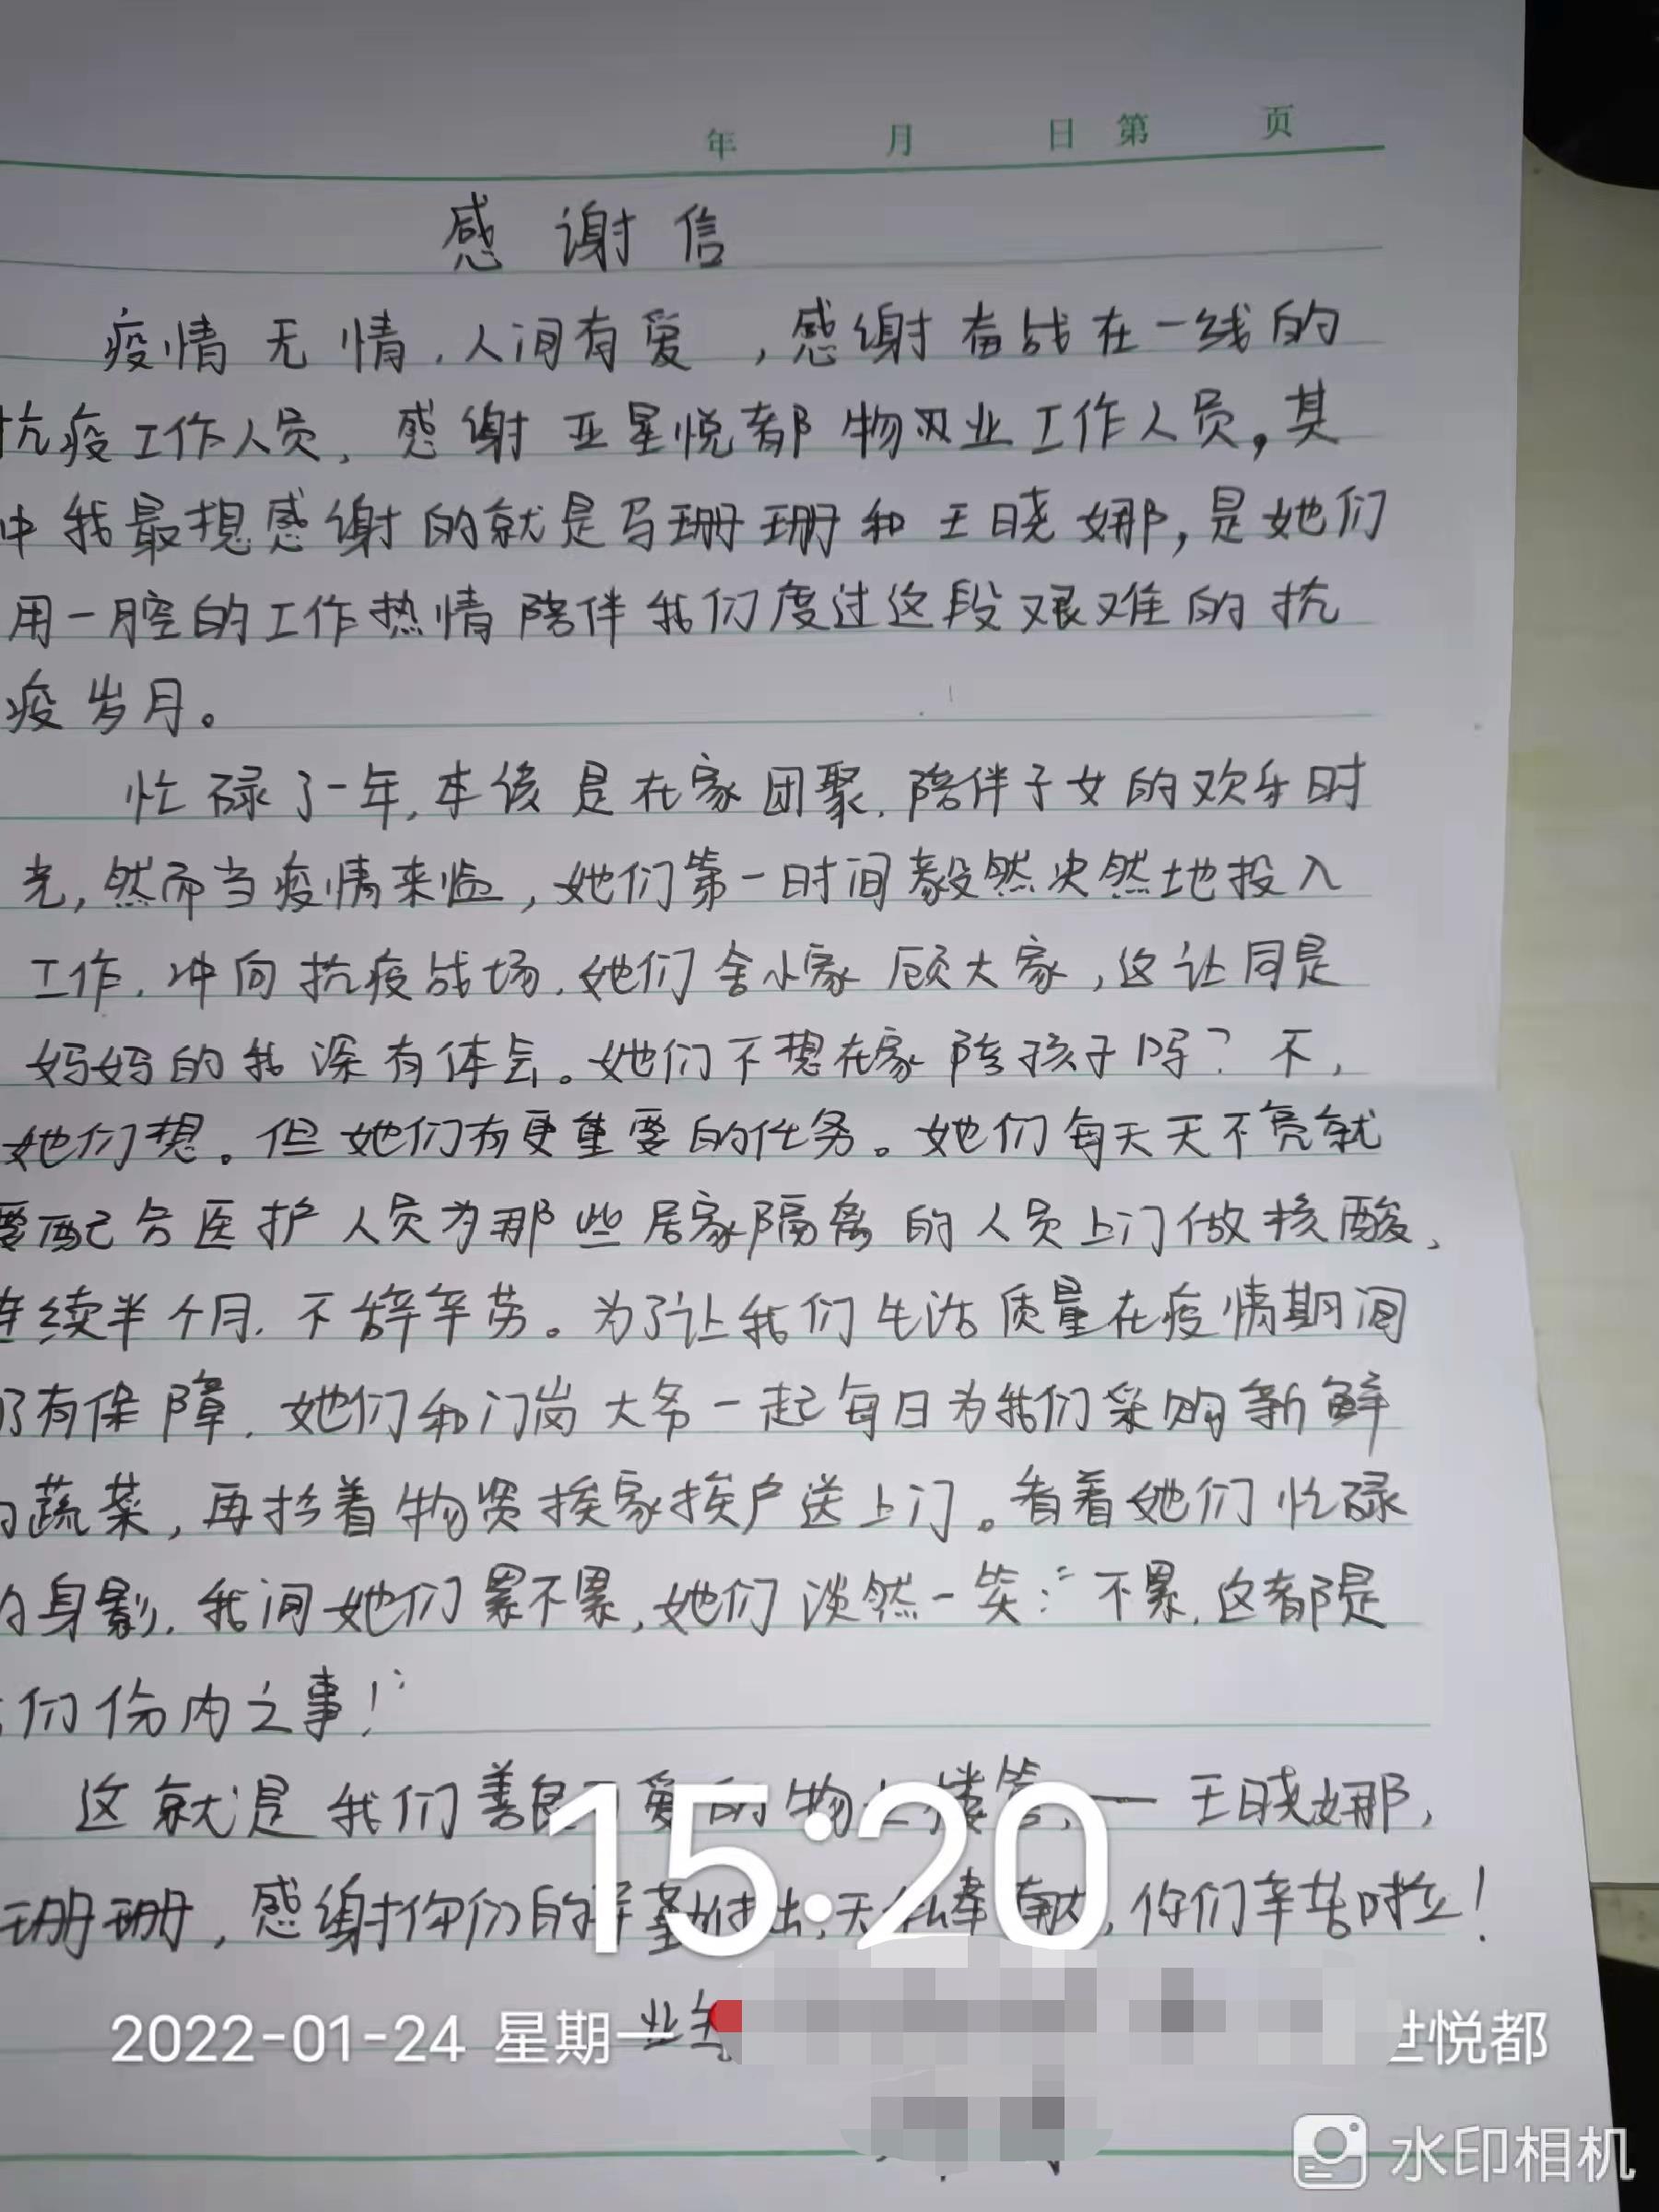 年 月 日 第 页
感谢信
疫情无情，人间有爱，感谢奋战在一线的
抗疫工作人员，感谢亚星悦都物业工作人员，其
中我最想感谢的就是马珊珊和王晓娜，是她们
用一腔的工作热情陪伴我们度过这段艰难的抗
疫岁月。
忙碌了一年，本该是在家团聚，陪伴子女的欢乐时
光，然而当疫情来临，她们第一时间毅然决然地投入
工作，冲向抗疫战场，她们舍小家顾大家，这让同是
妈妈的我深有体会。她们不想在家陪孩子吗？不，
她们想。但她们有更重要的任务。她们每天天不亮就
要配合医护人员为那些居家隔离的人员上门做核酸，
连续半个月，不辞辛劳。为了让我们生活质量在疫情期间
仍有保障，她们和门岗大爷一起每日为我们采购新鲜
的蔬菜，再拎着物资挨家挨户送上门。看着她们忙碌
的身影，我问她们累不累，她们淡然一笑：“不累，这都是
们份内之事！”
这就是我们善良 爱的物 楼管，—王晓娜，
珊珊，感谢你们的辛勤付出，无私奉献，你们辛苦啦！
业主
15:20
2022-01-24 星期一
悦都
水印相机